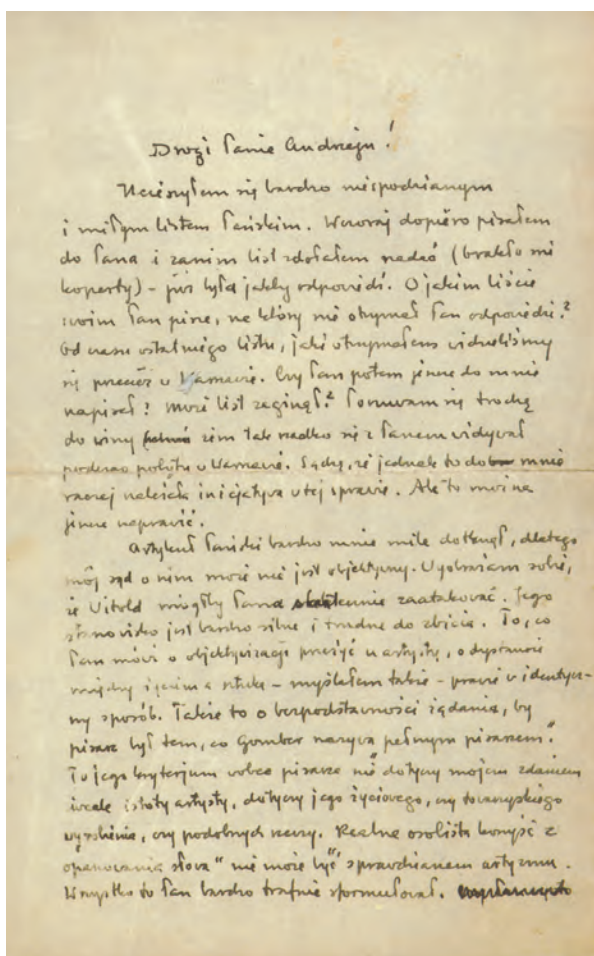 Drogi Panie Andrzeju!
Ucieszyłem się bardzo niespodzianym
i miłym listem Pańskim. Wczoraj dopiero pisałem
do Pana i zanim list zdołałem nadać (brakło mi
koperty) – już była jakby odpowiedź. O jakim liście
swoim Pan pisze, na który nie otrzymał Pan odpowiedzi?
Od czasu ostatniego listu, jaki otrzymałem widzieliśmy
się przecież w Warszawie. Czy Pan potem jeszcze do mnie
napisał? Może list zaginął? Poczuwam się trochę
do winy żem tak rzadko się z Panem widywał
podczas pobytu w Warszawie. Sądzę, że jednak to do mnie
raczej należała inicjatywa w tej sprawie. Ale to można
jeszcze naprawić.
Artykuł Pański bardzo mnie mile dotknął, dlatego
mój sąd o nim może nie jest objektywny. Wyobrażam sobie,
że Witold mógłby Pana skutecznie zaatakować. Jego
stanowisko jest bardzo silne i trudne do zbicia. To, co
Pan mówi o objektywizacji przeżyć u artysty, o dystansie
między życiem a sztuką – myślałem także – prawie w identycz-
ny sposób. Także to o bezpodstawności żądania, by
pisarz był tem, co Gomber nazywa pełnym pisarzem".
To jego kryterjum wobec pisarza nie dotyczy mojem zdaniem
wcale istoty artysty, dotyczy jego życiowego, czy towarzyskiego
wyrobienia, czy podobnych rzeczy. Realna osobista korzyść z
opanowania słowa" nie może być sprawdzianem artyzmu.
Wszystko to Pan bardzo trafnie sformułował.